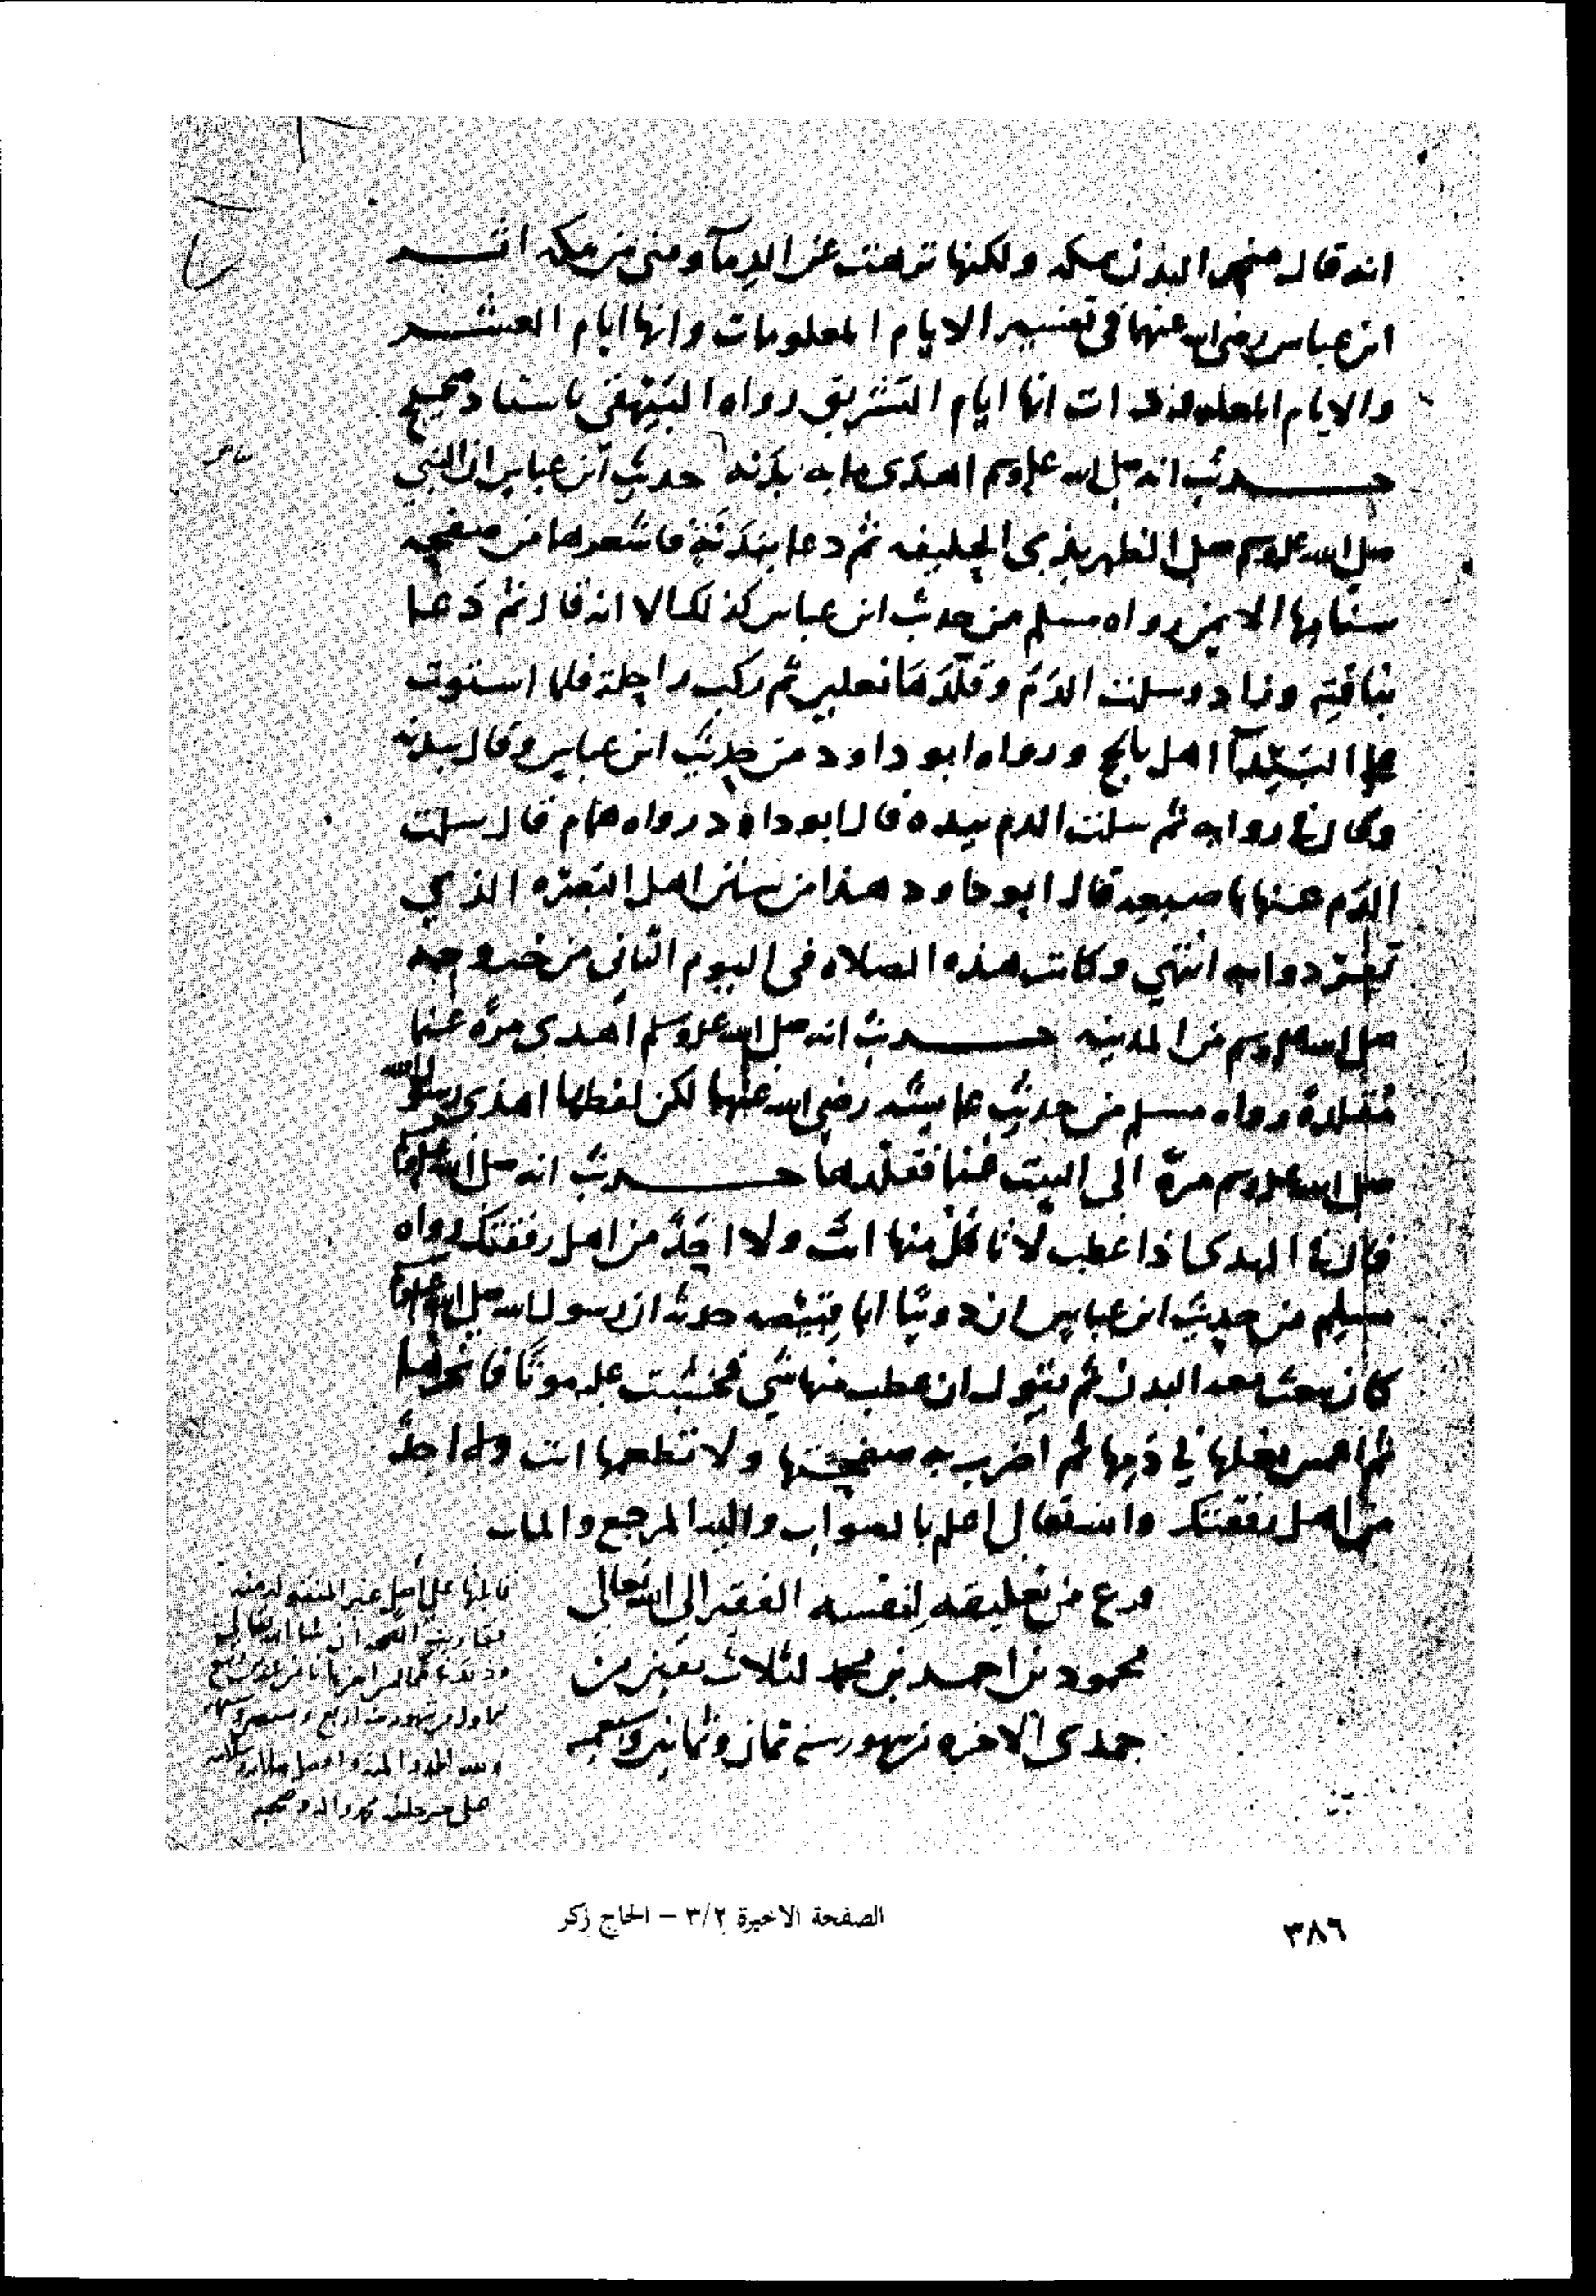 انه قال منحر البدن بمكه ولكنها نزهت عن الدمآ ومنى من مكه اثــر
ابن عباس رضي الله عنهما في تفسير الايام المعلومات وانها ايام العشــر
والايام المعدودات انها ايام التشريق رواه البيهقي باسناد صحيح
حــديث انه صلى الله عليه وسلم اهدى مايه بدنه حديث ابن عباس ان النبي
صلى الله عليه وسلم صلى الظهر بذي الحليفه ثم دعا ببدنة فاشعرها من صفحه
سنامها الايمن رواه مسلم من حديث ابن عباس كذلك الا انه قال ثم دعا
بناقته وزاد وسلت الدم وقلدها نعلين ثم ركب راحلته فلما استوت
على البيدآ اهل بالحج ورواه ابو داود من حديث ابن عباس وقال ببدنه
وقال في روايه ثم سلت الدم بيده قال ابو داود رواه همام قال سلت
الدم عنها باصبعه قال ابو داود هذا من سنن اهل البصره الذي
تفرد وابه انتهي وكانت هذه الصلاه في اليوم الثاني من خروجه
صلى الله عليه وسلم من المدينه حــديث انه صلى الله عليه وسلم اهدى مرة غنما
مقلدة رواه مسلم من حديث عايشه رضي الله عنها لكن لفظها اهدى رسول الله
صلى الله عليه وسلم مرة الى البيت غنما فقلدها حــديث انه صلى الله عليه وسلم
قال في الهدى اذا عطب لا تاكل منها انت ولا احد من اهل رفقتك رواه
مسلم من حديث ابن عباس ان ذويبا ابا قبيصه حدثه ان رسول الله صلى الله عليه وسلم
كان يبعث معه البدن ثم يقول ان عطب منها شي فخشيت عليه موتا فانحرها
ثم اغمس نعلها في دمها ثم اضرب به صفحتها ولا تطعمها انت ولا احد
من اهل رفقتك والله تعالى اعلم بالصواب واليه المرجع والماب
فرغ من تعليقه لنفسه الفقير الى الله تعالى
محمود بن احمد بن محمد لثلاث بقين من
جمدى الاخره من شهور سنه ثمان وثمانين وسبعميه
قابلتها على اصل غير المنقول منه
فقاربت الصحه ان شا الله تعالى
على خير خلقه محمد واله وصحبه
الصفحة الاخيرة ٣/٢ – الحاج زكر
٣٨٦